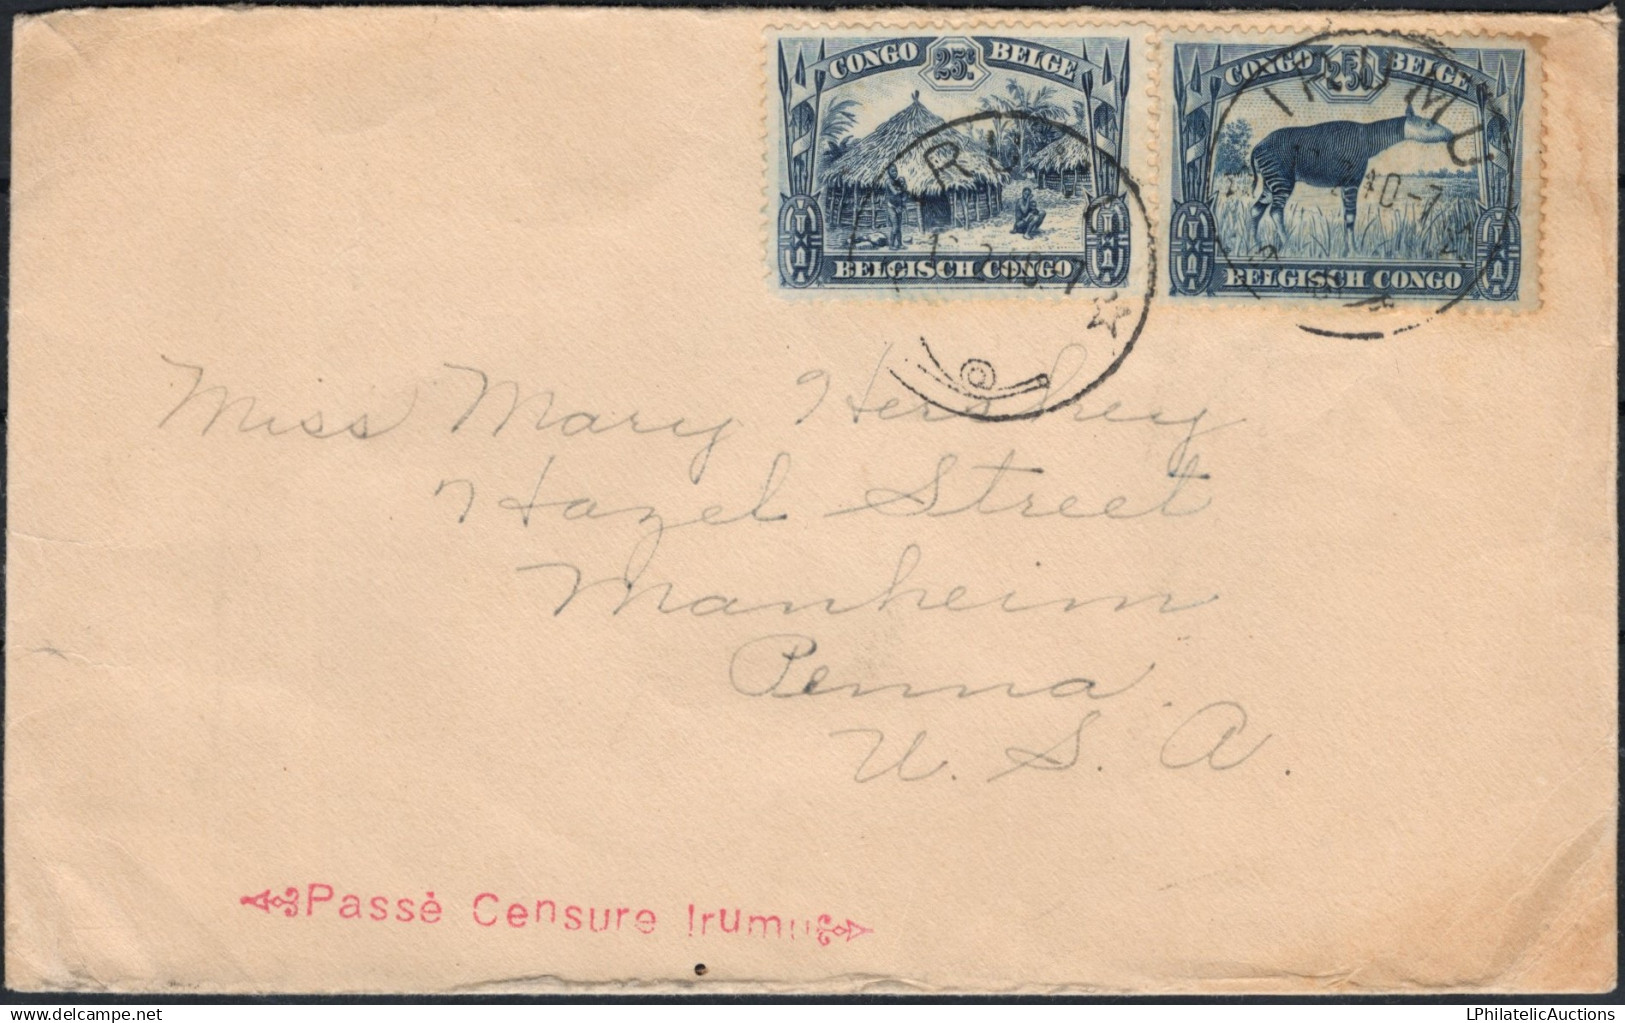 CONGO 25c BELGE
BELGISCH CONGO
CONGO 250 BELGE
BELGISCH CONGO
IRUMU
Miss Mary Hershey
Hazel Street
Manheim
Penna.
U. S. A.
Passè Censure Irumu
LPhilatelicAuctions